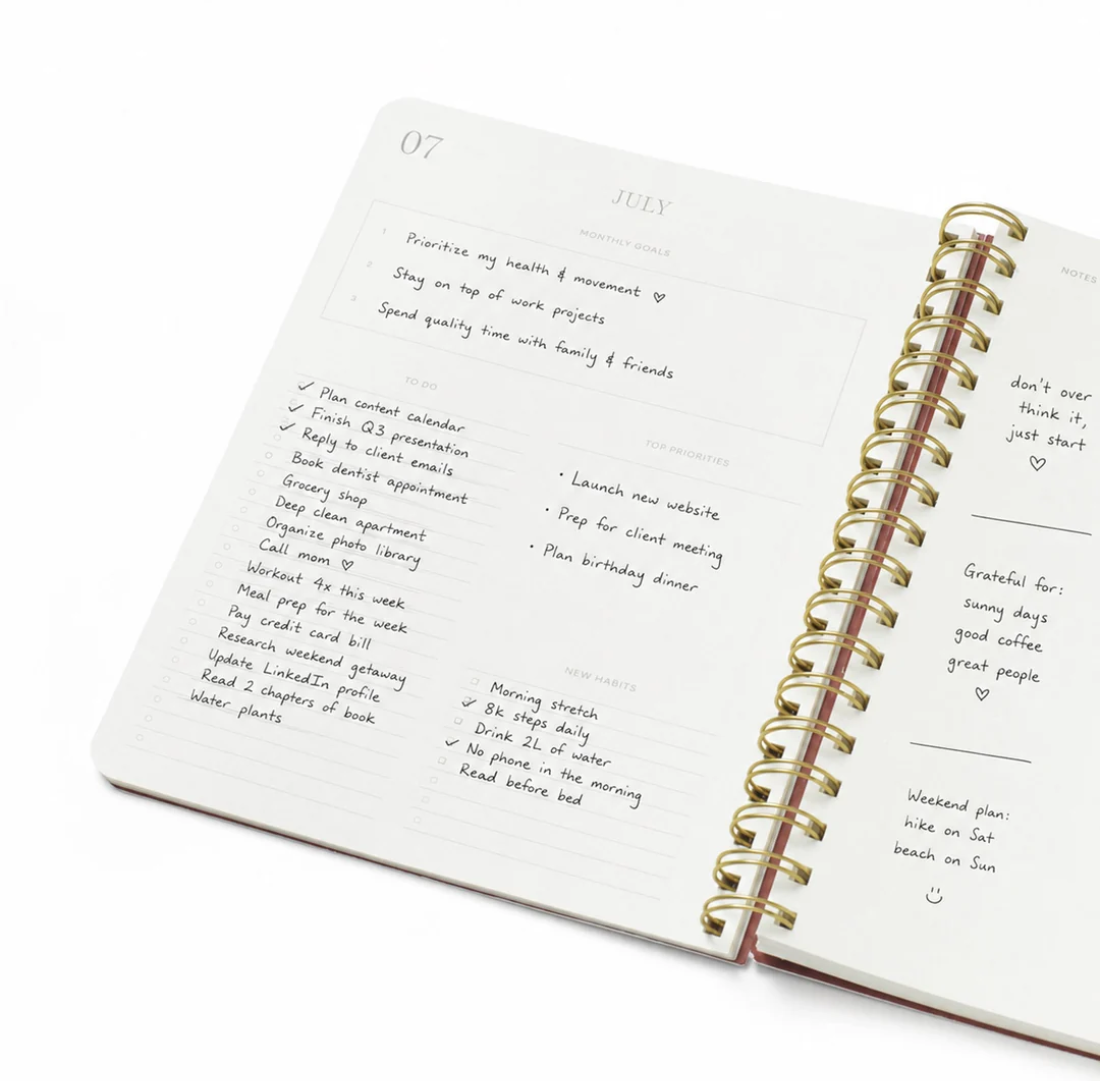 07
JULY
MONTHLY GOALS
1 Prioritize my health & movement ♡
2 Stay on top of work projects
3 Spend quality time with family & friends
TO DO
✓ Plan content calendar
✓ Finish Q3 presentation
✓ Reply to client emails
Book dentist appointment
Grocery shop
Deep clean apartment
Organize photo library
Call mom ♡
Workout 4x this week
Meal prep for the week
Pay credit card bill
Research weekend getaway
Update LinkedIn profile
Read 2 chapters of book
Water plants
TOP PRIORITIES
• Launch new website
• Prep for client meeting
• Plan birthday dinner
NEW HABITS
Morning stretch
✓ 8k steps daily
Drink 2L of water
✓ No phone in the morning
Read before bed
NOTES
don't over
think it,
just start
♡
Grateful for:
sunny days
good coffee
great people
♡
Weekend plan:
hike on Sat
beach on Sun